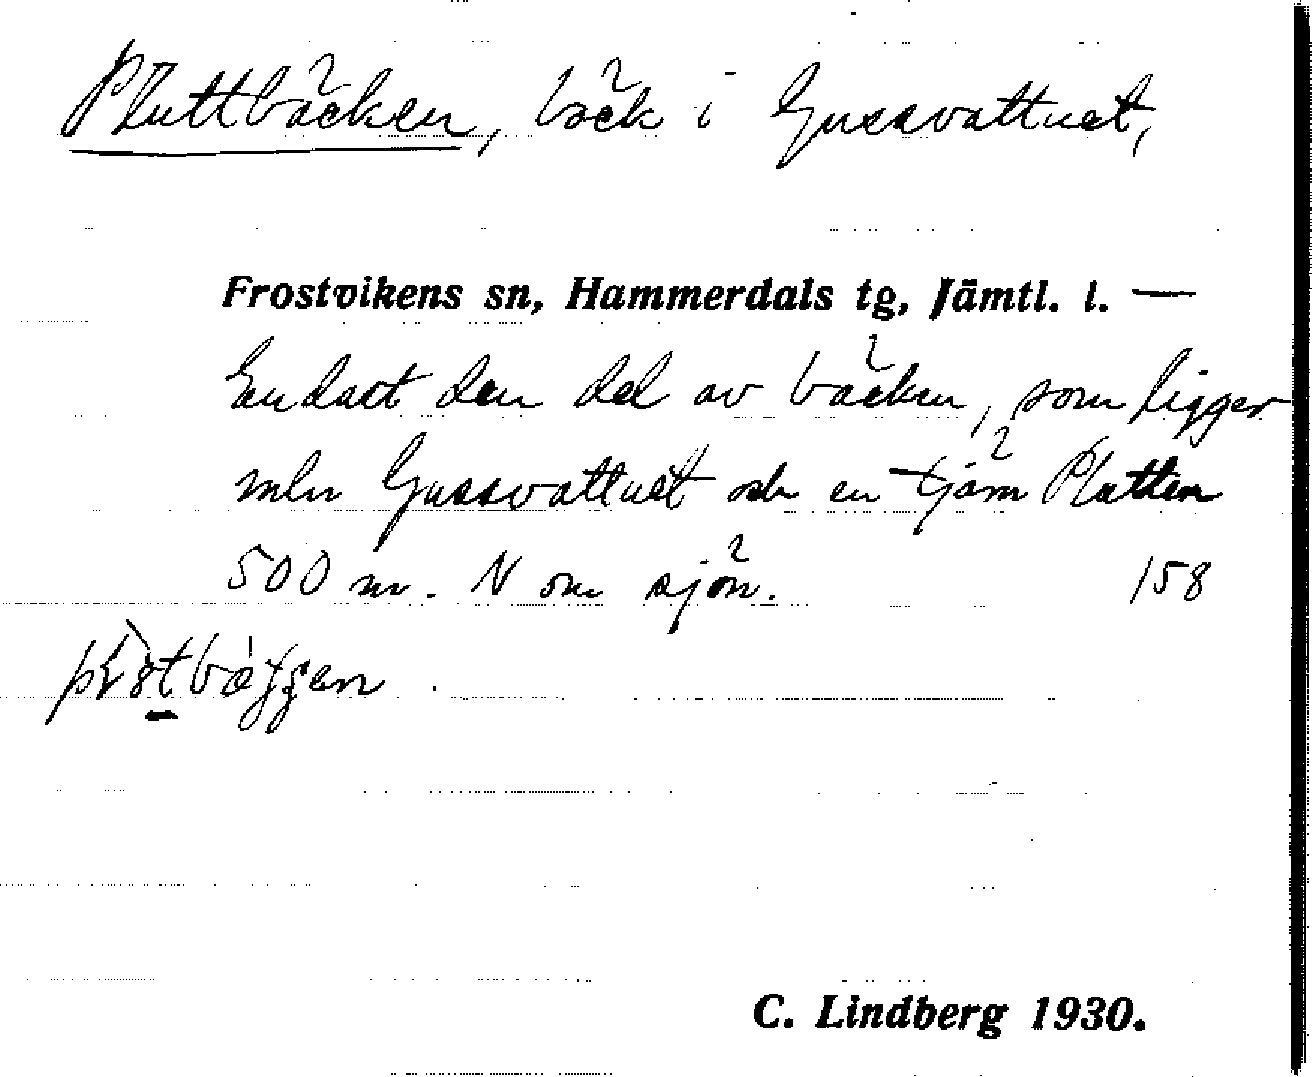 Pluttbäcken, bäck i Gussvattnet,
Frostvikens sn, Hammerdals tg, Jämtl. l. —
Endast den del av bäcken, som ligger
mln Gussvattnet och en tjärn Plutten
500 m. N om sjön. 158